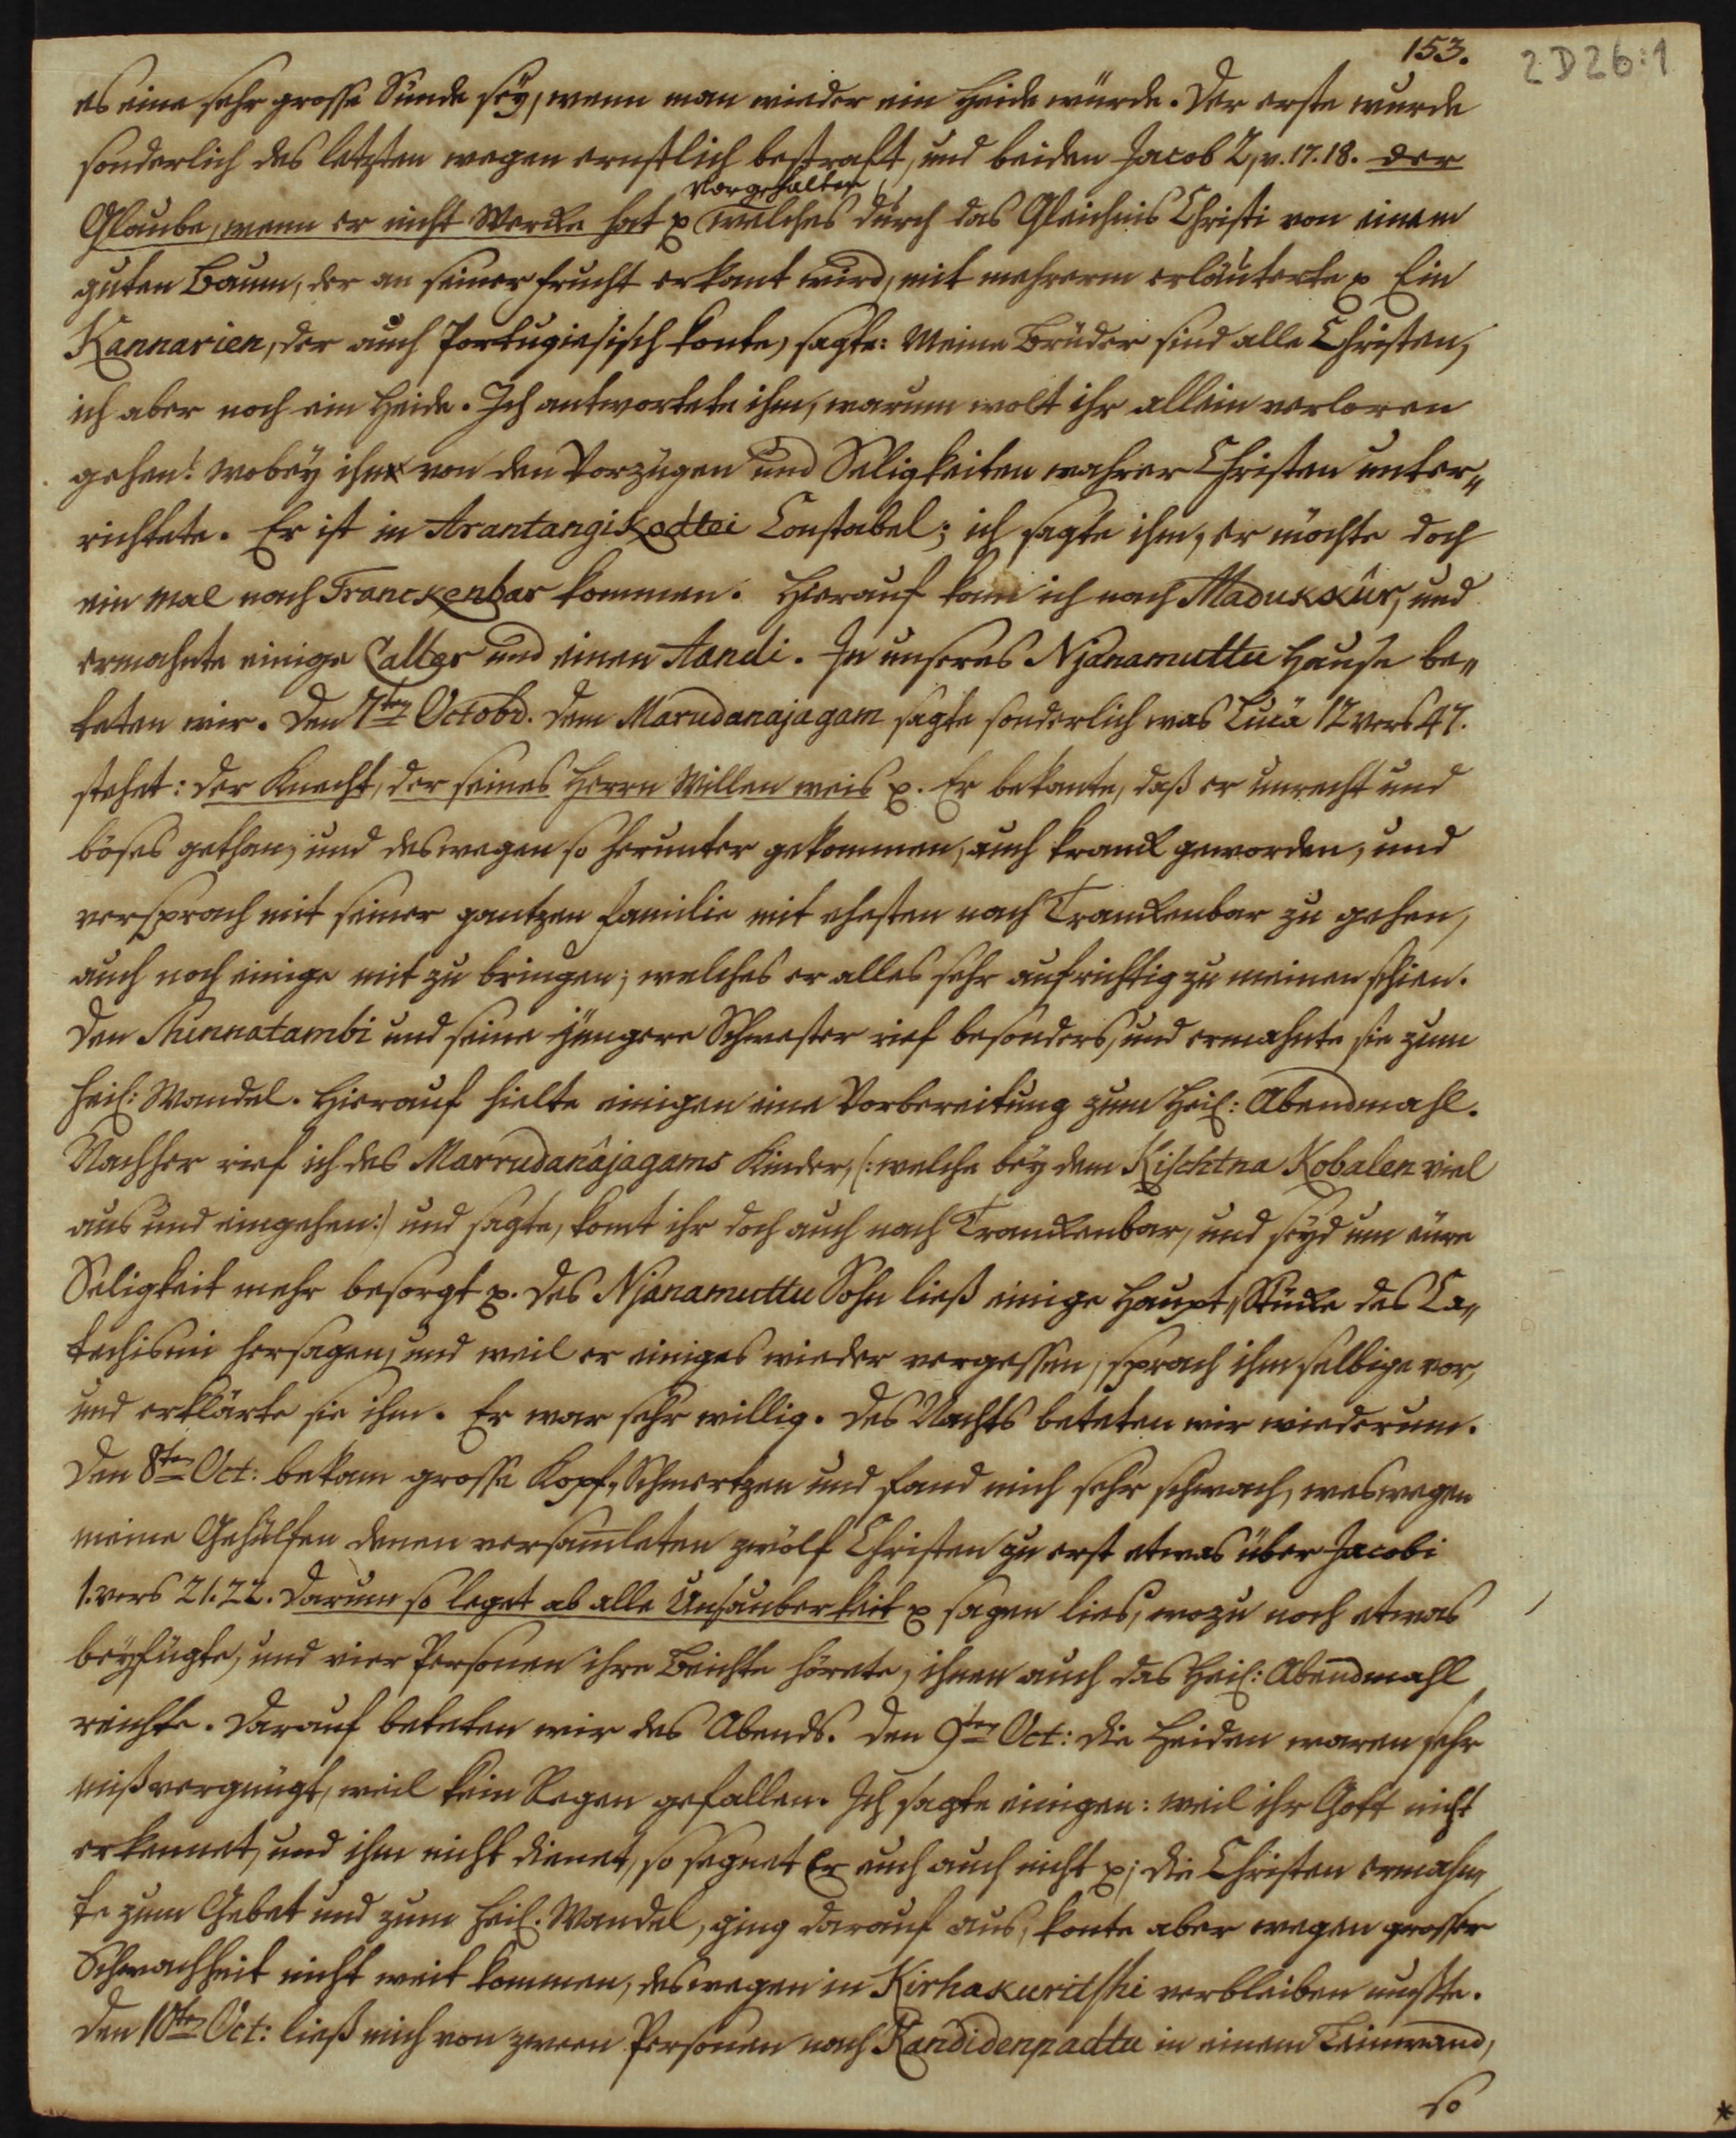 153.
2 D 26:1
es eine sehr grosse Sünde seÿ, wenn man wieder ein Heide würde. Der erste wurde
sonderlich des letzten wegen ernstlich bestraft, und beiden Jacob 2, v. 17. 18. der
vorgehalten,
Glaube, wenn er nicht Wercke hat p welches durch das Gleichnis Christi von einem
guten Baum, der an seiner Frucht erkant wird, mit mehrerm erläuterte p Ein
Kannarien, der auch Portugiesisch konte, sagte: Meine Brüder sind alle Christen,
ich aber noch ein Heide. Ich antwortete ihm, warum wolt ihr allein verloren
gehen? wobeÿ ihn von den Vorzügen und Seligkeiten wahrer Christen unter„
richtete. Er ist in Arantangikodtei Constabel; ich sagte ihm, er möchte doch
ein mal nach Tranckenbar kommen. Hierauf kam ich nach Madukkûr, und
ermahnte einige Caller und einen Aandi. In unseres Njânamuttu Hause be„
teten wir. Den 7ten Octobr. dem Marudanajagam sagte sonderlich was Lucä 12 vers 47.
stehet: der Knecht, der seines Herrn Willen weis p. Er bekante, daß er unrecht und
böses gethan, und deswegen so herunter gekommen, auch kranck geworden, und
versprach mit seiner gantzen Familie mit ehesten nach Tranckenbar zu gehen,
auch noch einige mit zu bringen; welches er alles sehr aufrichtig zu meinen schien.
Den Sünnatambi und seine jüngere Schwester rief besonders, und ermahnte sie zum
heil: Wandel. Hierauf hielte einigen eine Vorbereitung zum Heil: Abendmahl.
Nachher rief ich des Marrudanâjagams Kinder, (: welche beÿ dem Kischtna Kobalen viel
aus und eingehen:) und sagte, komt ihr doch auch nach Tranckenbar, und seÿd um eure
Seligkeit mehr besorgt p. Des Njanamuttu Sohn ließ einige Haupt„Stücke des Ca„
techismi hersagen, und weil er einiges wieder vergessen, sprach ihm selbige vor,
und erklärte sie ihm. Er war sehr willig. Des Nachts beteten wir wiederum.
Den 8ten Oct: bekam grosse Kopf„Schmertzen und fand mich sehr schwach, weswegen
meine Gehülfen denen versamleten zwölf Christen zu erst etwas über Jacobi
1. vers 21. 22. Darum so leget ab alle Unsauberkeit p sagen lies, wozu noch etwas
beÿfügte, und vier Personen ihre Beichte hörete, ihnen auch das Heil: Abendmahl
reichte. Darauf beteten wir des Abends. Den 9ten Oct: Die Heiden waren sehr
mißvergnügt, weil kein Regen gefallen. Ich sagte einigen: weil ihr Gott nicht
erkennet, und ihm nicht dienet, so segnet Er euch auch nicht p; die Christen ermahn„
te zum Gebet und zum heil. Wandel, ging darauf aus, konte aber wegen grosser
Schwachheit nicht weit kommen, deswegen in Kirhakuritshi verbleiben muste.
Den 10ten Oct: ließ mich von zween Personen nach Kandidenpadtu in einem Leinwand,
so